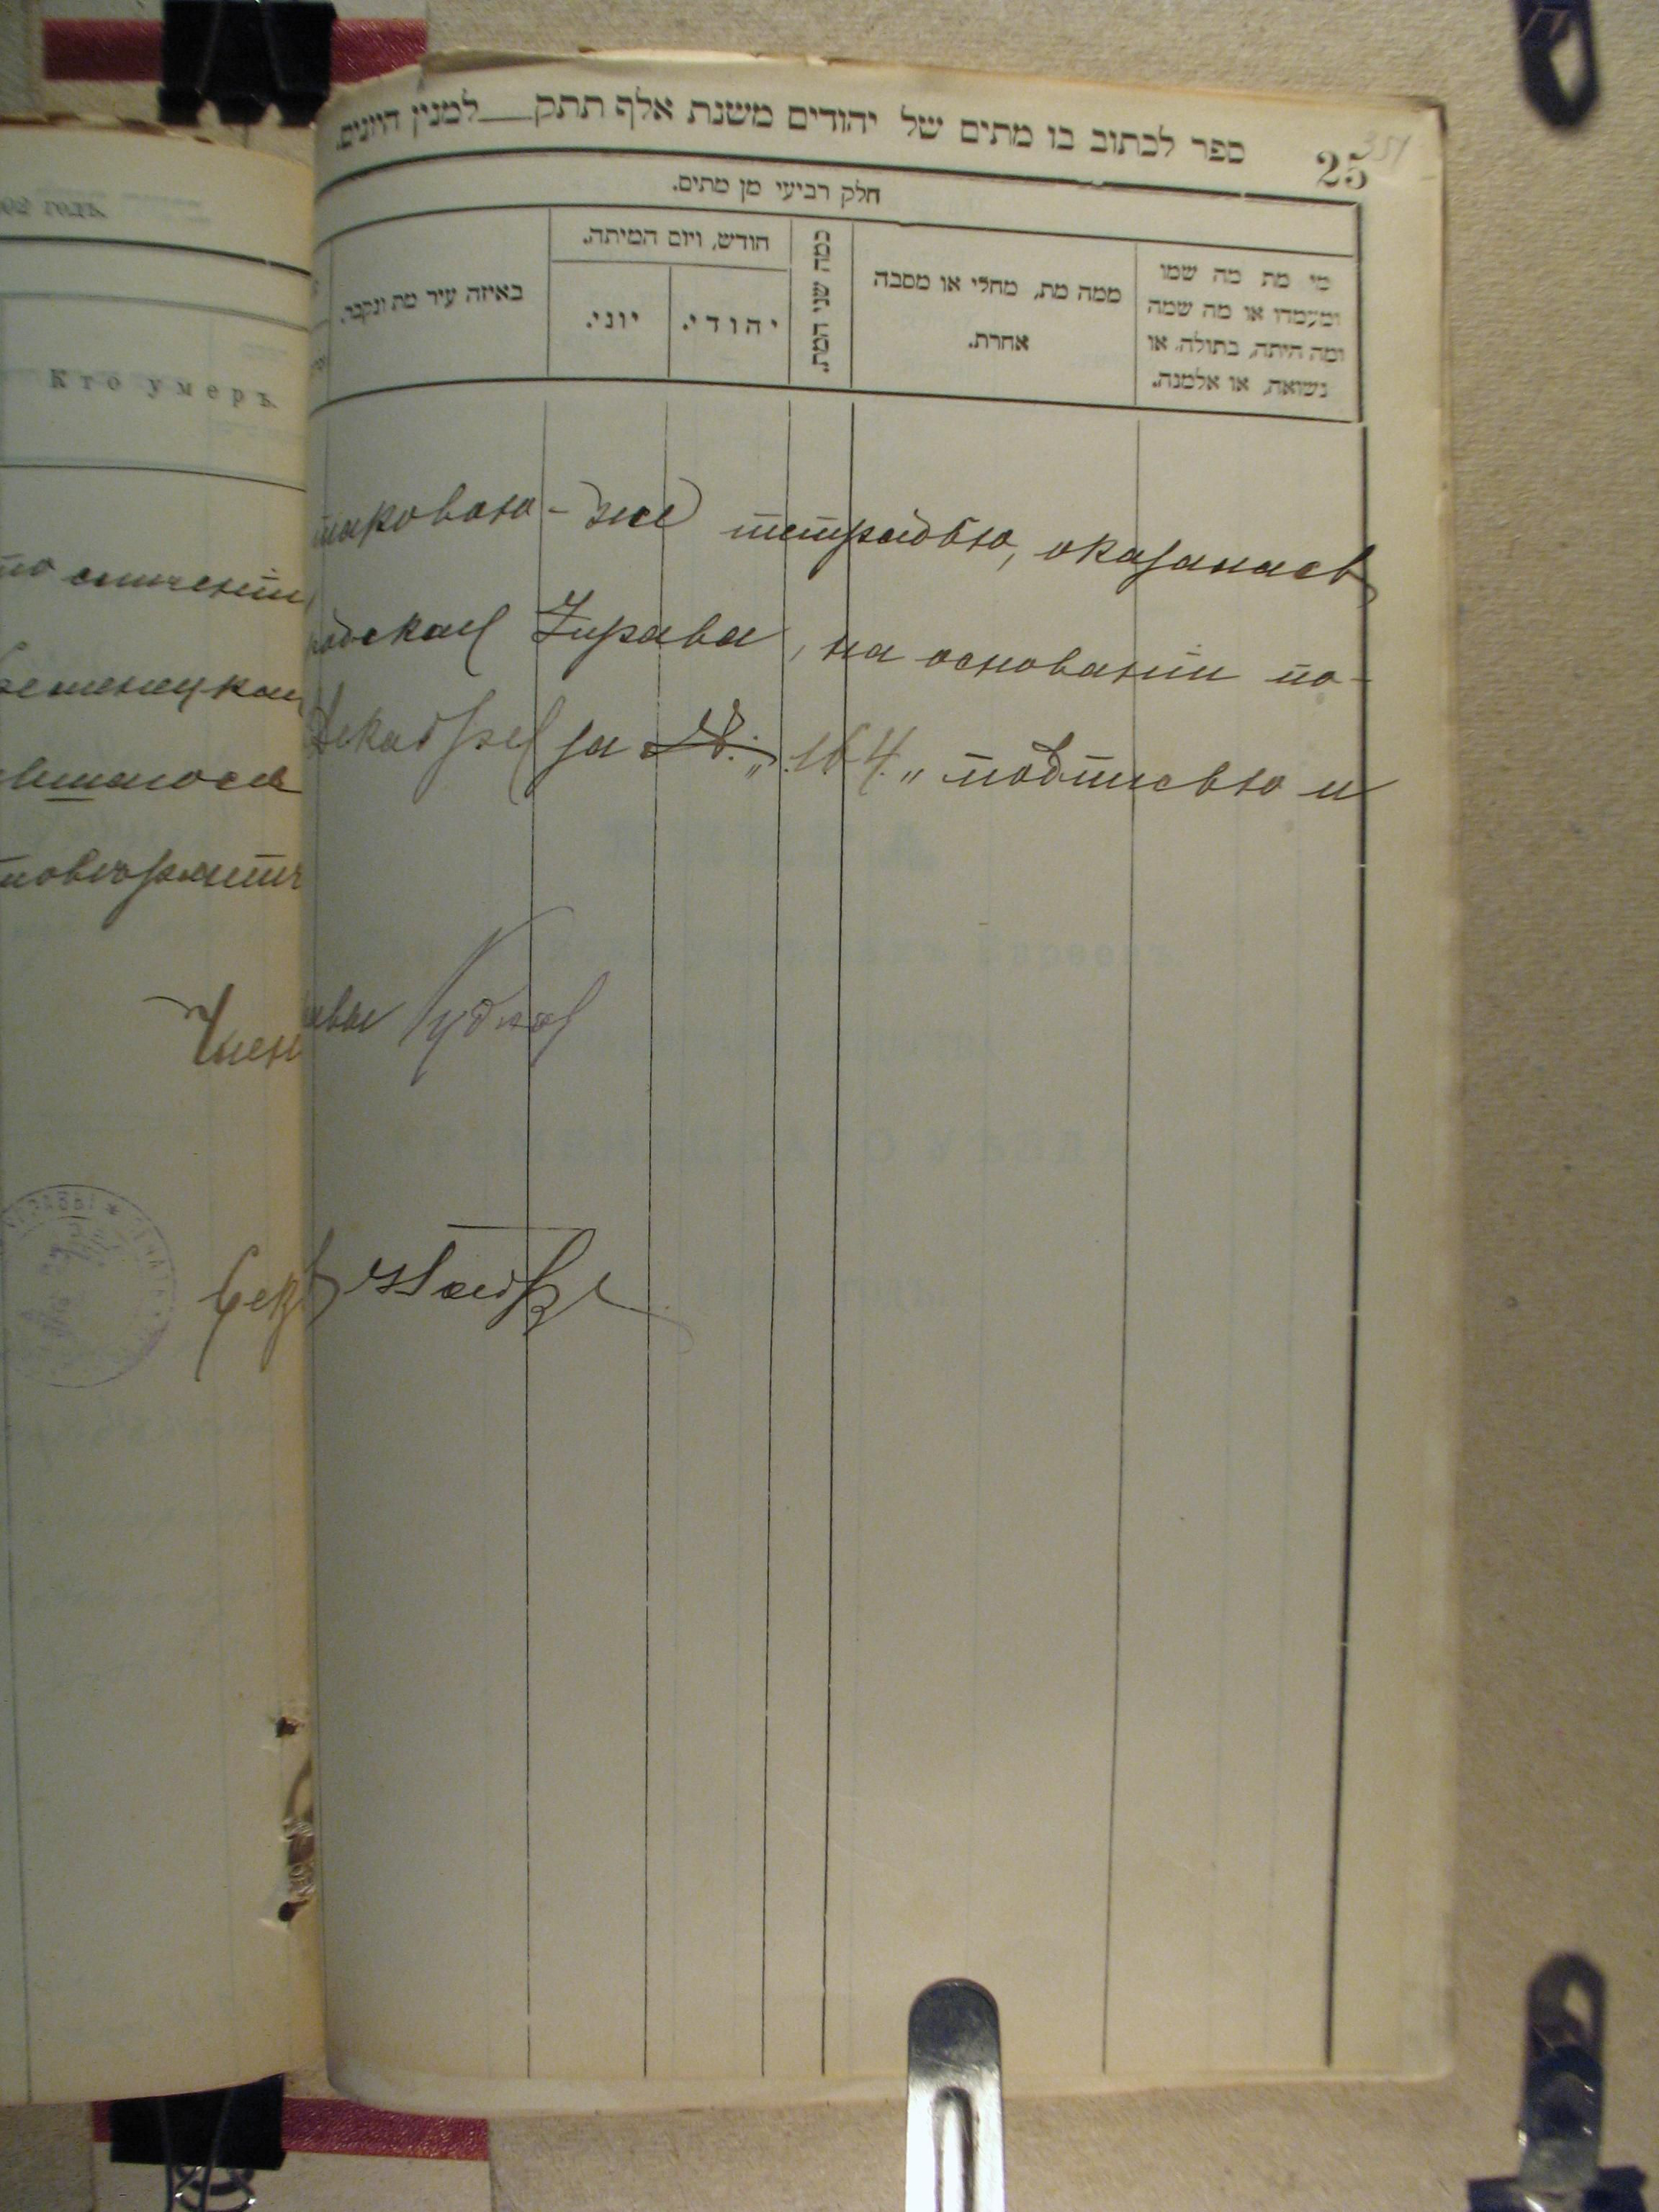 02 годъ.
Кто умеръ.
по сличеніи
ременецкая
авшагося
Член
Секр
ספר לכתוב בו מתים של יהודים משנת אלף תתק למנין היונים.
25
351
חלק רביעי מן מתים.
מי מת מה שמו ומעמדו או מה שמה ומה היתה, בתולה, או נשואה, או אלמנה.
ממה מת, מחלי או מסבה אחרת.
כמה שני המת.
חודש, ויום המיתה.
יהודי.
יוני.
באיזה עיר מת ונקבר.
таковою-же тетрадью, оказалась
родская Управа, на основаніи по-
Декабря за №. „164." подписью и
авы